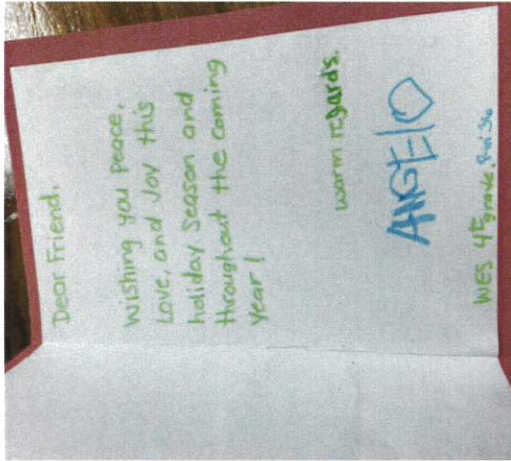 Dear Friend,
Wishing you Peace,
Love, and Joy this
holiday Season and
throughout the coming
year!
warm regards,
ANGElO
WES 4th grade,